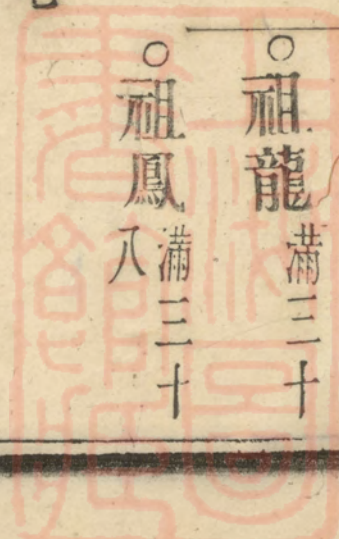 ○祖龍滿三十
○祖鳳滿三十
八